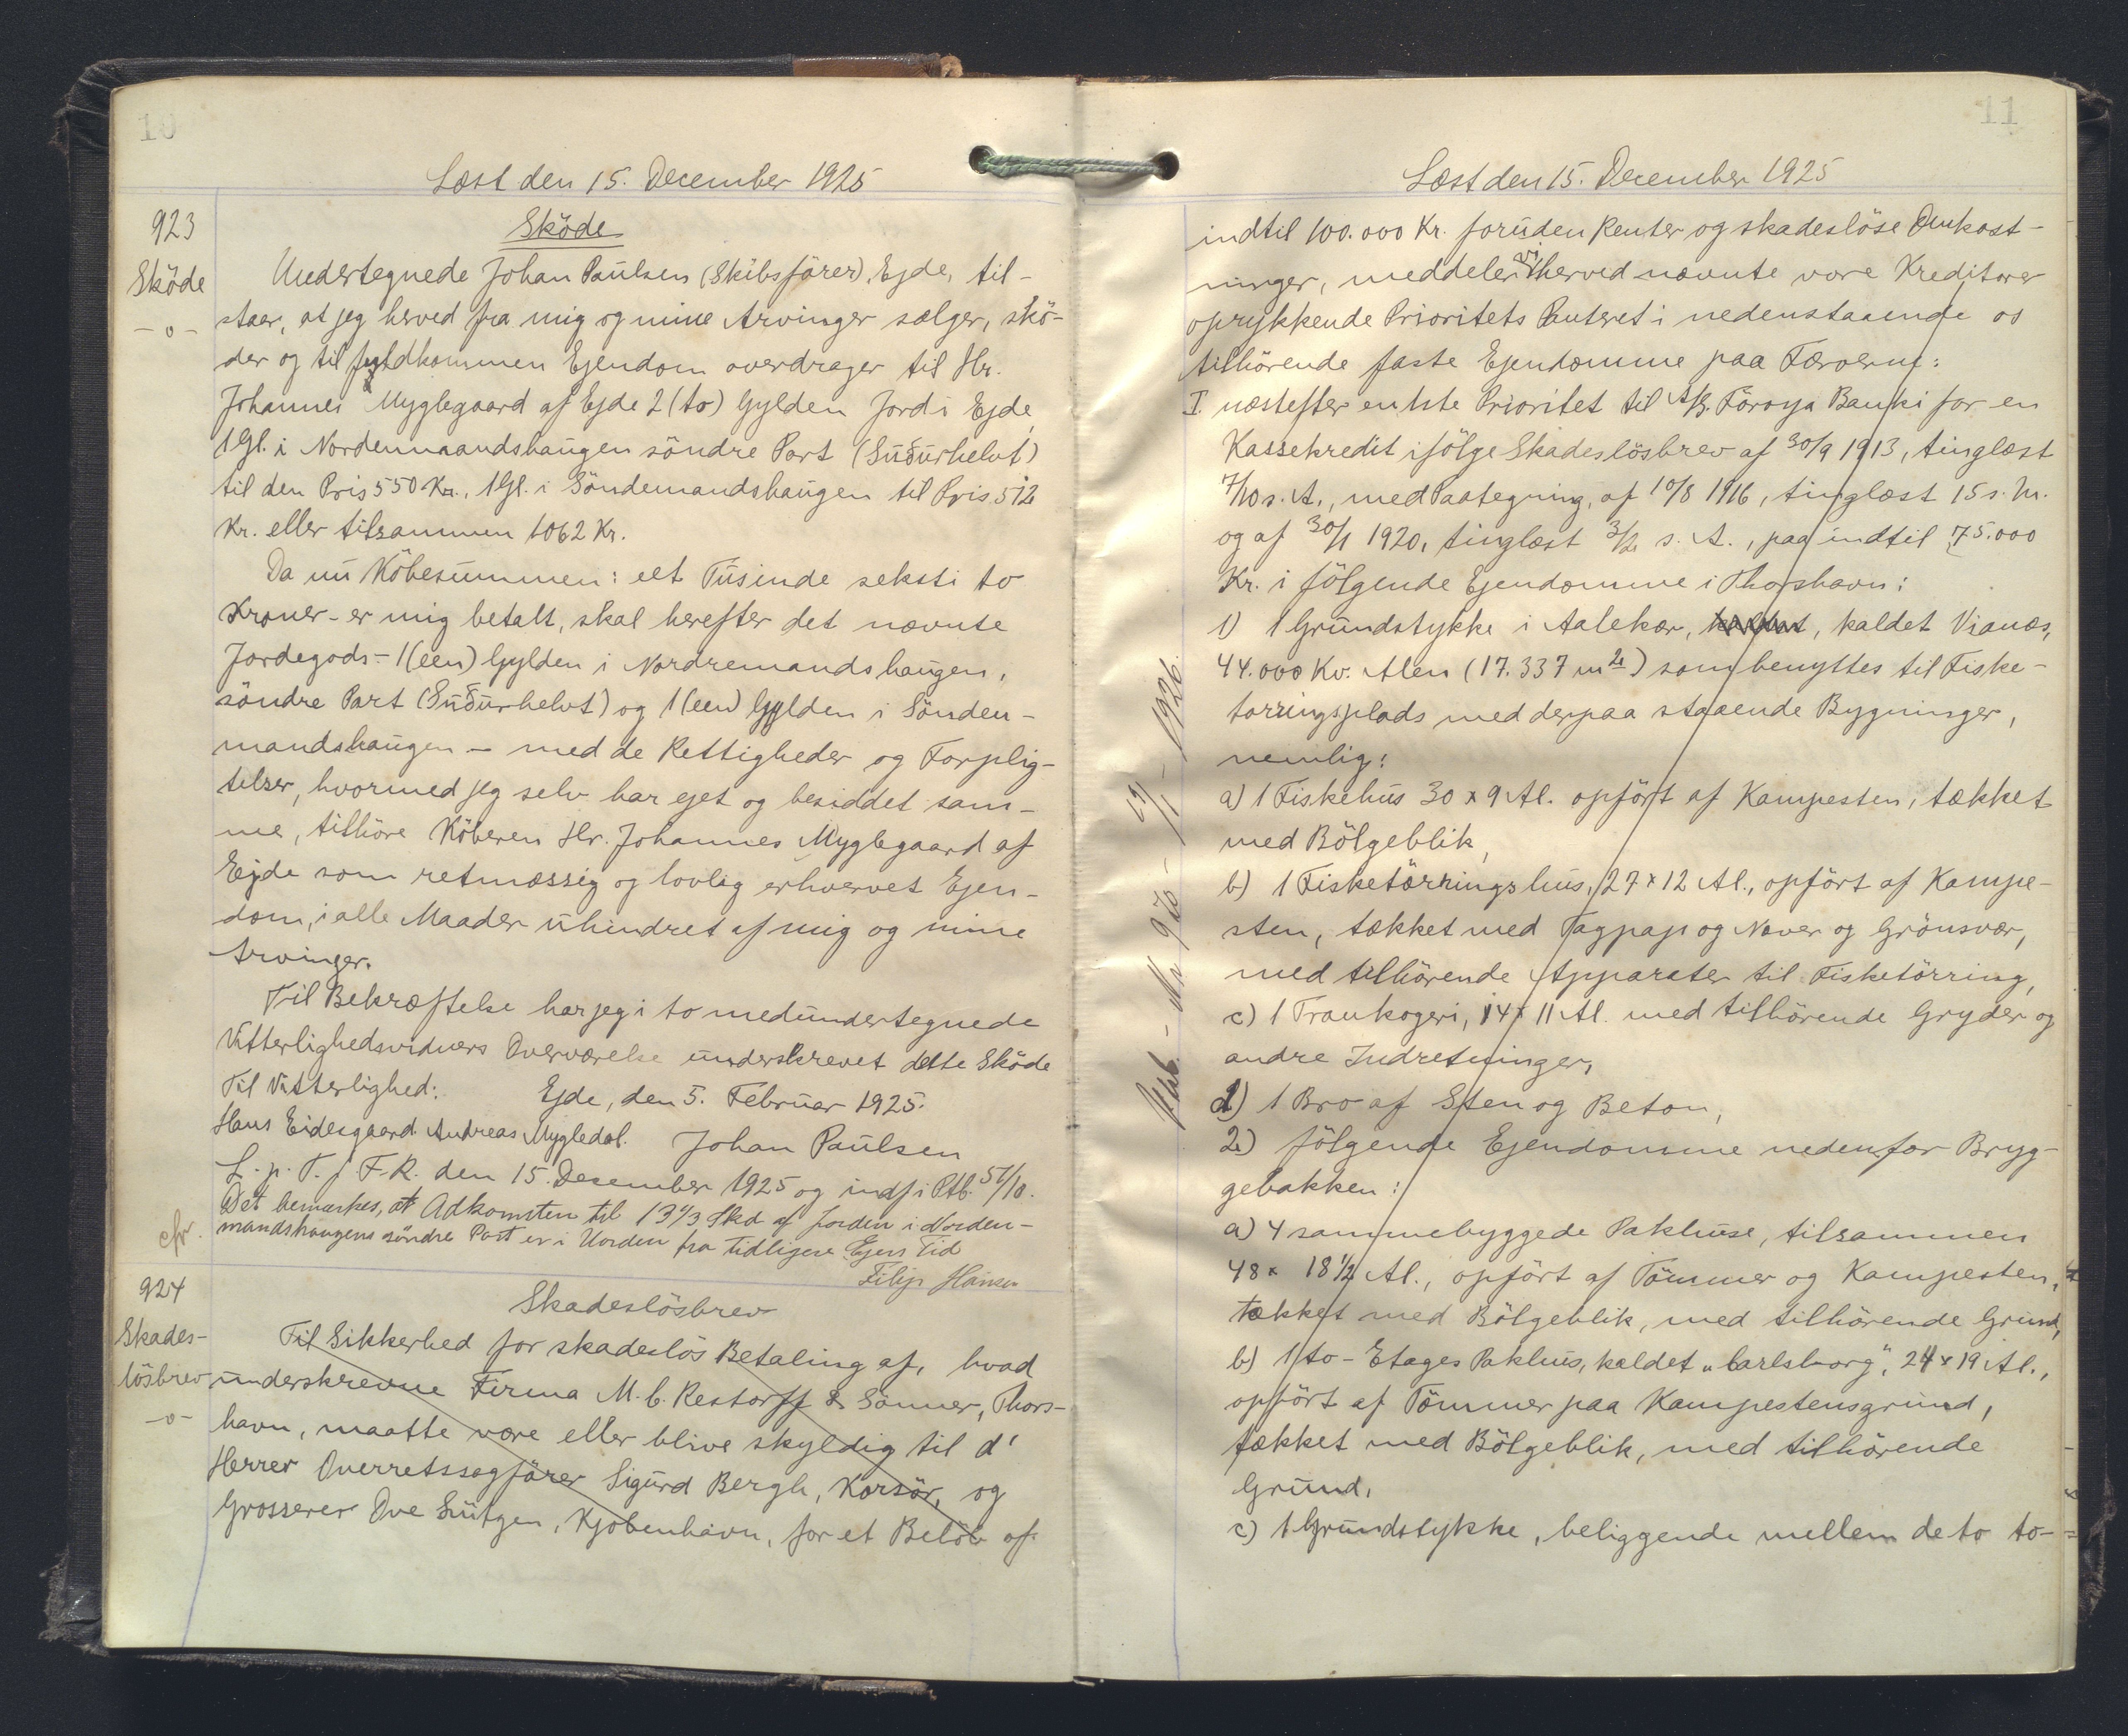 10
Læst den 15. December 1925
923
Sköde
-o-
Sköde
Undertegnede Johan Paulsen (Skibsförer), Ejde, til-
staar, at jeg herved fra mig og mine Arvinger sælger, skö-
der og til fuldkommen Ejendom overdrager til Hr.
Johannes Myglegaard af Ejde 2 (to) Gylden Jord i Ejde,
1 Gl. i Nordenmaandshaugen söndre Part (Suðurhelvt)
til den Pris 550 Kr., 1 Gl. i Söndemandshaugen til Pris 512
Kr. eller tilsammen 1062 Kr.
Da nu Köbesummen: eet Tusinde seksti to
Kroner - er mig betalt, skal herefter det nævnte
Jordegods - 1 (een) Gylden i Nordremandshaugen,
söndre Part (Suðurhelvt) og 1 (een) Gylden i Sönden-
mandshaugen - med de Rettigheder og Forplig-
telser, hvormed jeg selv har ejet og besiddet sam-
me, tilhöre Köberen Hr. Johannes Myglegaard af
Ejde som retmæssig og lovlig erhvervet Ejen-
dom, i alle Maader uhindret af mig og mine
Arvinger.
Til Bekræftelse har jeg i to medundertegnede
Vitterlighedsvidners Overværelse underskrevet dette Sköde
Til Vitterlighed: Ejde, den 5. Februar 1925.
Hans Eidesgaard. Andreas Mygledal. Johan Paulsen
L. p. T. f. F. R. den 15. December 1925 og indf. i Ptb. 57/10.
Det bemærkes, at Adkomsten til 13 1/3 Skd af Jorden i Norden-
cfr. mandshaugens söndre Part er i Uorden fra tidligere Ejers Tid
Filip Hansen
924
Skades-
lösbrev
-o-
Skadeslösbrev
Til Sikkerhed for skadeslös Betaling af, hvad
underskrevne Firma M. C. Restorff & Sönner, Thors-
havn, maatte være eller blive skyldig til d'
Herrer Overretssagförer Sigurd Bergh, Korsör, og
Grosserer Ove , Kjöbenhavn, for et Belöb af
11
Læst den 15. December 1925
indtil 100.000 Kr. foruden Renter og skadeslöse Omkost-
ninger, meddeler vi herved nævnte vore Kreditorer
oprykkende Prioritets Panteret i nedenstaaende os
tilhörende faste Ejendomme paa Færoerne:
I. næstefter en 1ste Prioritet til A/S. Föroya Banki for en
Kassekredit ifölge Skadeslösbrev af 30/9 1913, tinglæst
7/10 s. A., med Paategning, af 10/8 1916, tinglæst 15 s. M.
og af 30/1 1920, tinglæst 3/2 s. A., paa indtil 75.000
Kr. i fölgende Ejendomme i Thorshavn:
1) 1 Grundstykke i Aalekær, , kaldet Vianæs,
44.000 Kv. Alen (17.337 m2) som benyttes til Fiske-
törringsplads med derpaa staaende Bygninger,
nemlig:
a) 1 Fiskehus 30 x 9 Al. opfört af Kampesten, tækket
med Bölgeblik,
b) 1 Fisketörringshus, 27 x 12 Al., opfört af Kampe-
sten, tækket med Tagpap og Næver og Grönsvær,
med tilhörende Apparater til Fisketörring,
c) 1 Trankogeri, 14 x 11 Al. med tilhörende Gryder og
andre Indretninger,
d) 1 Bro af Sten og Beton,
2) fölgende Ejendomme nedenfor Bryg-
gebakken:
a) 4 sammebyggede Pakhuse, tilsammen
48 x 18 1/2 Al., opfört af Tömmer og Kampesten,
tækket med Bölgeblik, med tilhörende Grund,
b) 1 to-Etages Pakhus, kaldet "Carlsborg", 24 x 19 Al.,
opfört af Tömmer paa Kampestensgrund,
tækket med Bölgeblik, med tilhörende
Grund,
c) 1 Grundstykke, beliggende mellem de to to-